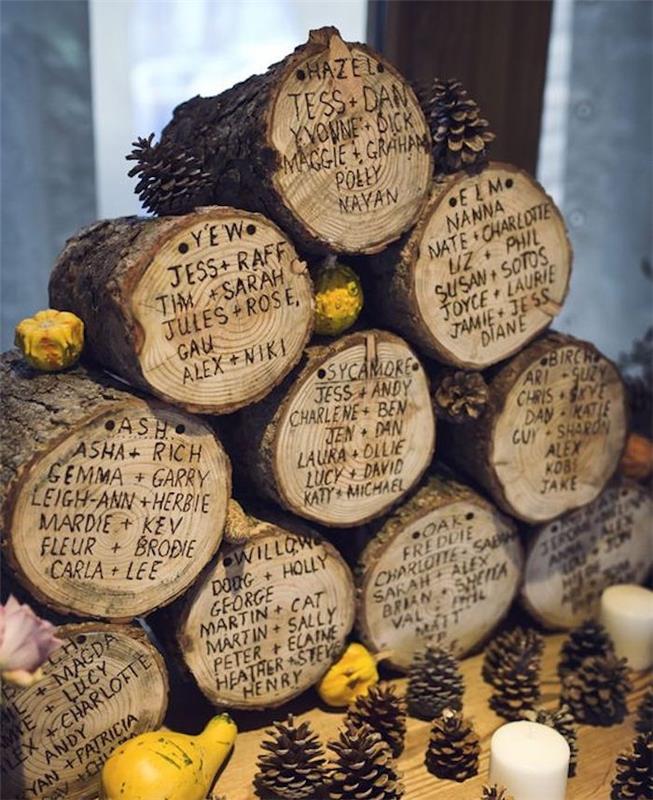 •HAZEL•
TESS + DAN
YVONNE + DICK
MAGGIE + GRAHAM
POLLY
NAYAN
•YEW•
JESS + RAFF
TIM + SARAH
JULES + ROSE,
GAU
ALEX + NIKI
•ELM•
NANNA
NATE + CHARLOTTE
LIZ + PHIL
SUSAN + SOTOS
JOYCE + LAURIE
JAMIE + JESS
DIANE
•ASH•
ASHA + RICH
GEMMA + GARRY
LEIGH-ANN + HERBIE
MARDIE + KEV
FLEUR + BRODIE
CARLA + LEE
•SYCAMORE•
JESS + ANDY
CHARLENE + BEN
JEN + DAN
LAURA + OLLIE
LUCY + DAVID
KATY + MICHAEL
•BIRCH•
ARI + SUZY
CHRIS + SKYE
DAN + KATIE
GUY + SHARON
ALEX
KOBI
JAKE
•WILLOW•
DOUG + HOLLY
GEORGE
MARTIN + CAT
MARTIN + SALLY
PETER + ELAINE
HEATHER + STEVE
HENRY
•OAK•
FREDDIE
CHARLOTTE + SARAH
SARAH + ALEX
BRIAN + SHEILA
VAL + PHIL
MATT
+ MAGDA
+ LUCY
+ CHARLOTTE
ANDY
+ PATRICIA